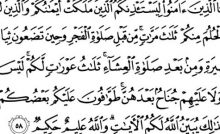 الَّذِينَ ءَامَنُوا لِيَسْتَـْٔذِنكُمُ الَّذِينَ مَلَكَتْ أَيْمَـٰنُكُمْ وَالَّذِينَ
الْحُلُمَ مِنكُمْ ثَلَـٰثَ مَرَّٰتٍ مِّن قَبْلِ صَلَوٰةِ الْفَجْرِ وَحِينَ تَضَعُونَ ثِيَا
يرَةِ وَمِنۢ بَعْدِ صَلَوٰةِ الْعِشَآءِ ثَلَـٰثُ عَوْرَٰتٍ لَّكُمْ لَيْسَ
وَلَا عَلَيْهِمْ جُنَاحٌۢ بَعْدَهُنَّ طَوَّٰفُونَ عَلَيْكُم بَعْضُكُمْ
لِكَ يُبَيِّنُ اللَّهُ لَكُمُ الْـَٔايَـٰتِ وَاللَّهُ عَلِيمٌ حَكِيمٌ ٥٨